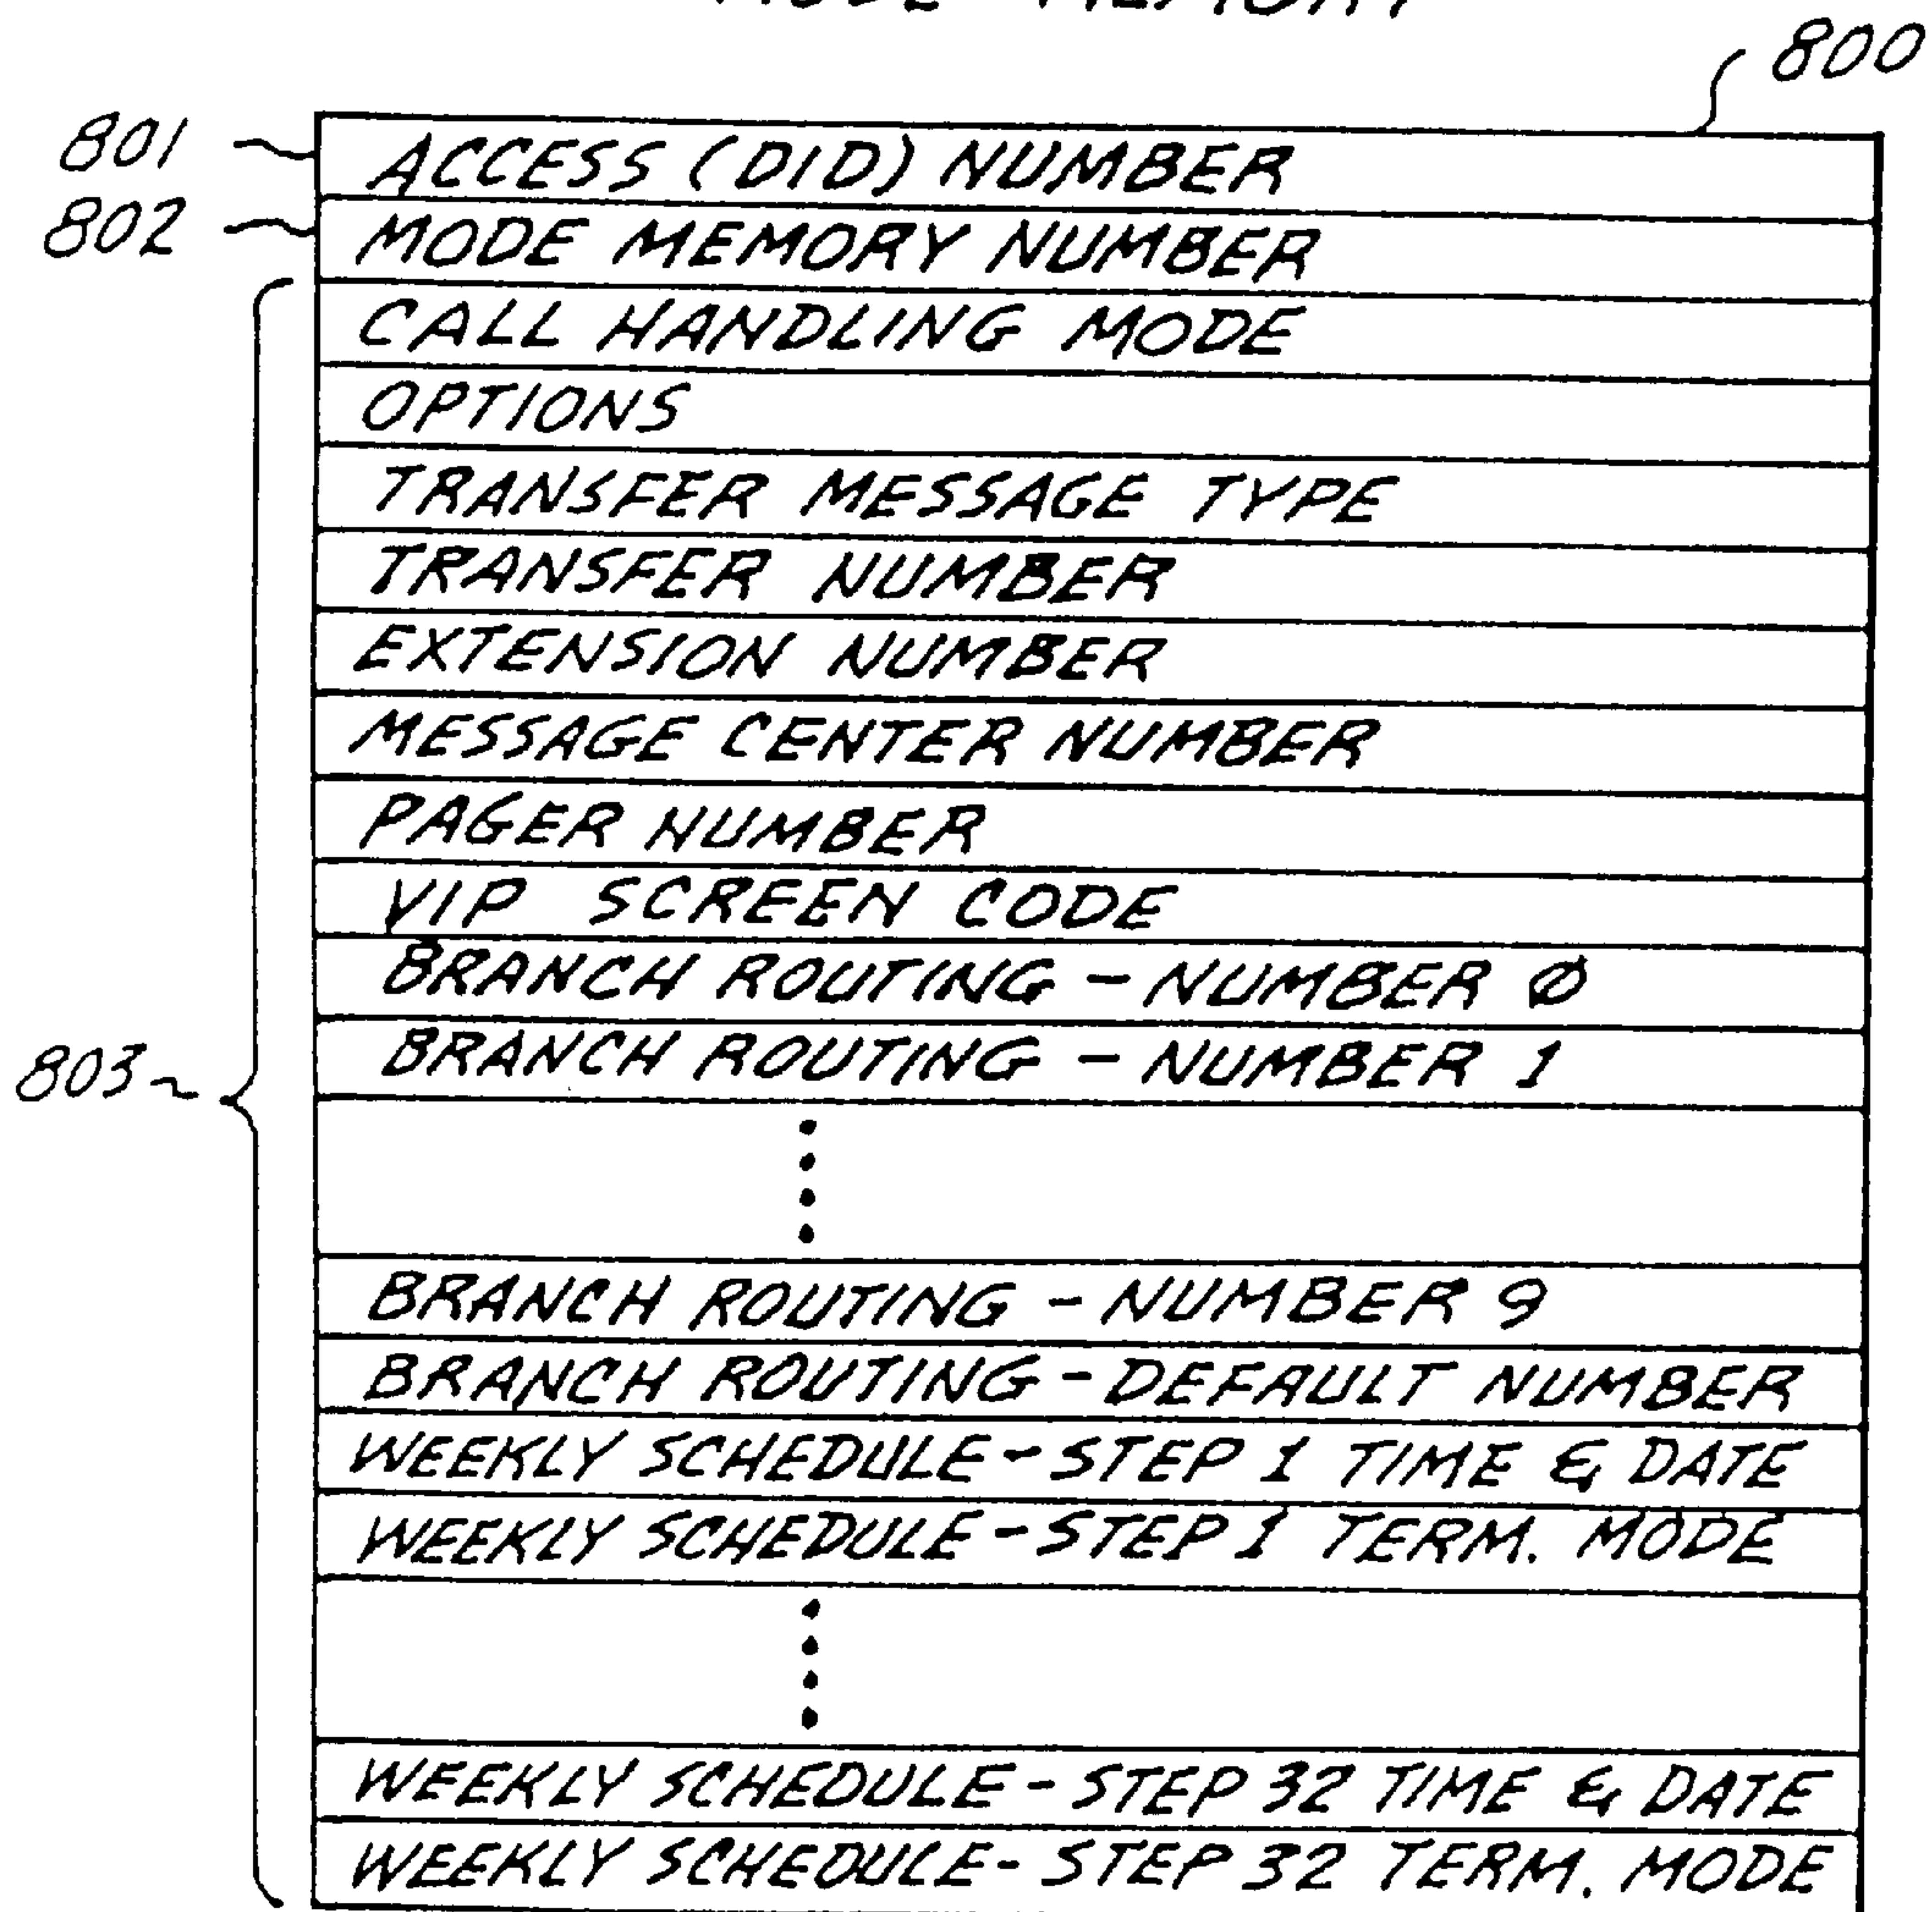 MODE MEMORY
800
801 ACCESS (DID) NUMBER
802 MODE MEMORY NUMBER
CALL HANDLING MODE
OPTIONS
TRANSFER MESSAGE TYPE
TRANSFER NUMBER
EXTENSION NUMBER
MESSAGE CENTER NUMBER
PAGER NUMBER
VIP SCREEN CODE
BRANCH ROUTING - NUMBER 0
803 BRANCH ROUTING - NUMBER 1
BRANCH ROUTING - NUMBER 9
BRANCH ROUTING - DEFAULT NUMBER
WEEKLY SCHEDULE - STEP 1 TIME & DATE
WEEKLY SCHEDULE - STEP 1 TERM. MODE
WEEKLY SCHEDULE - STEP 32 TIME & DATE
WEEKLY SCHEDULE - STEP 32 TERM. MODE